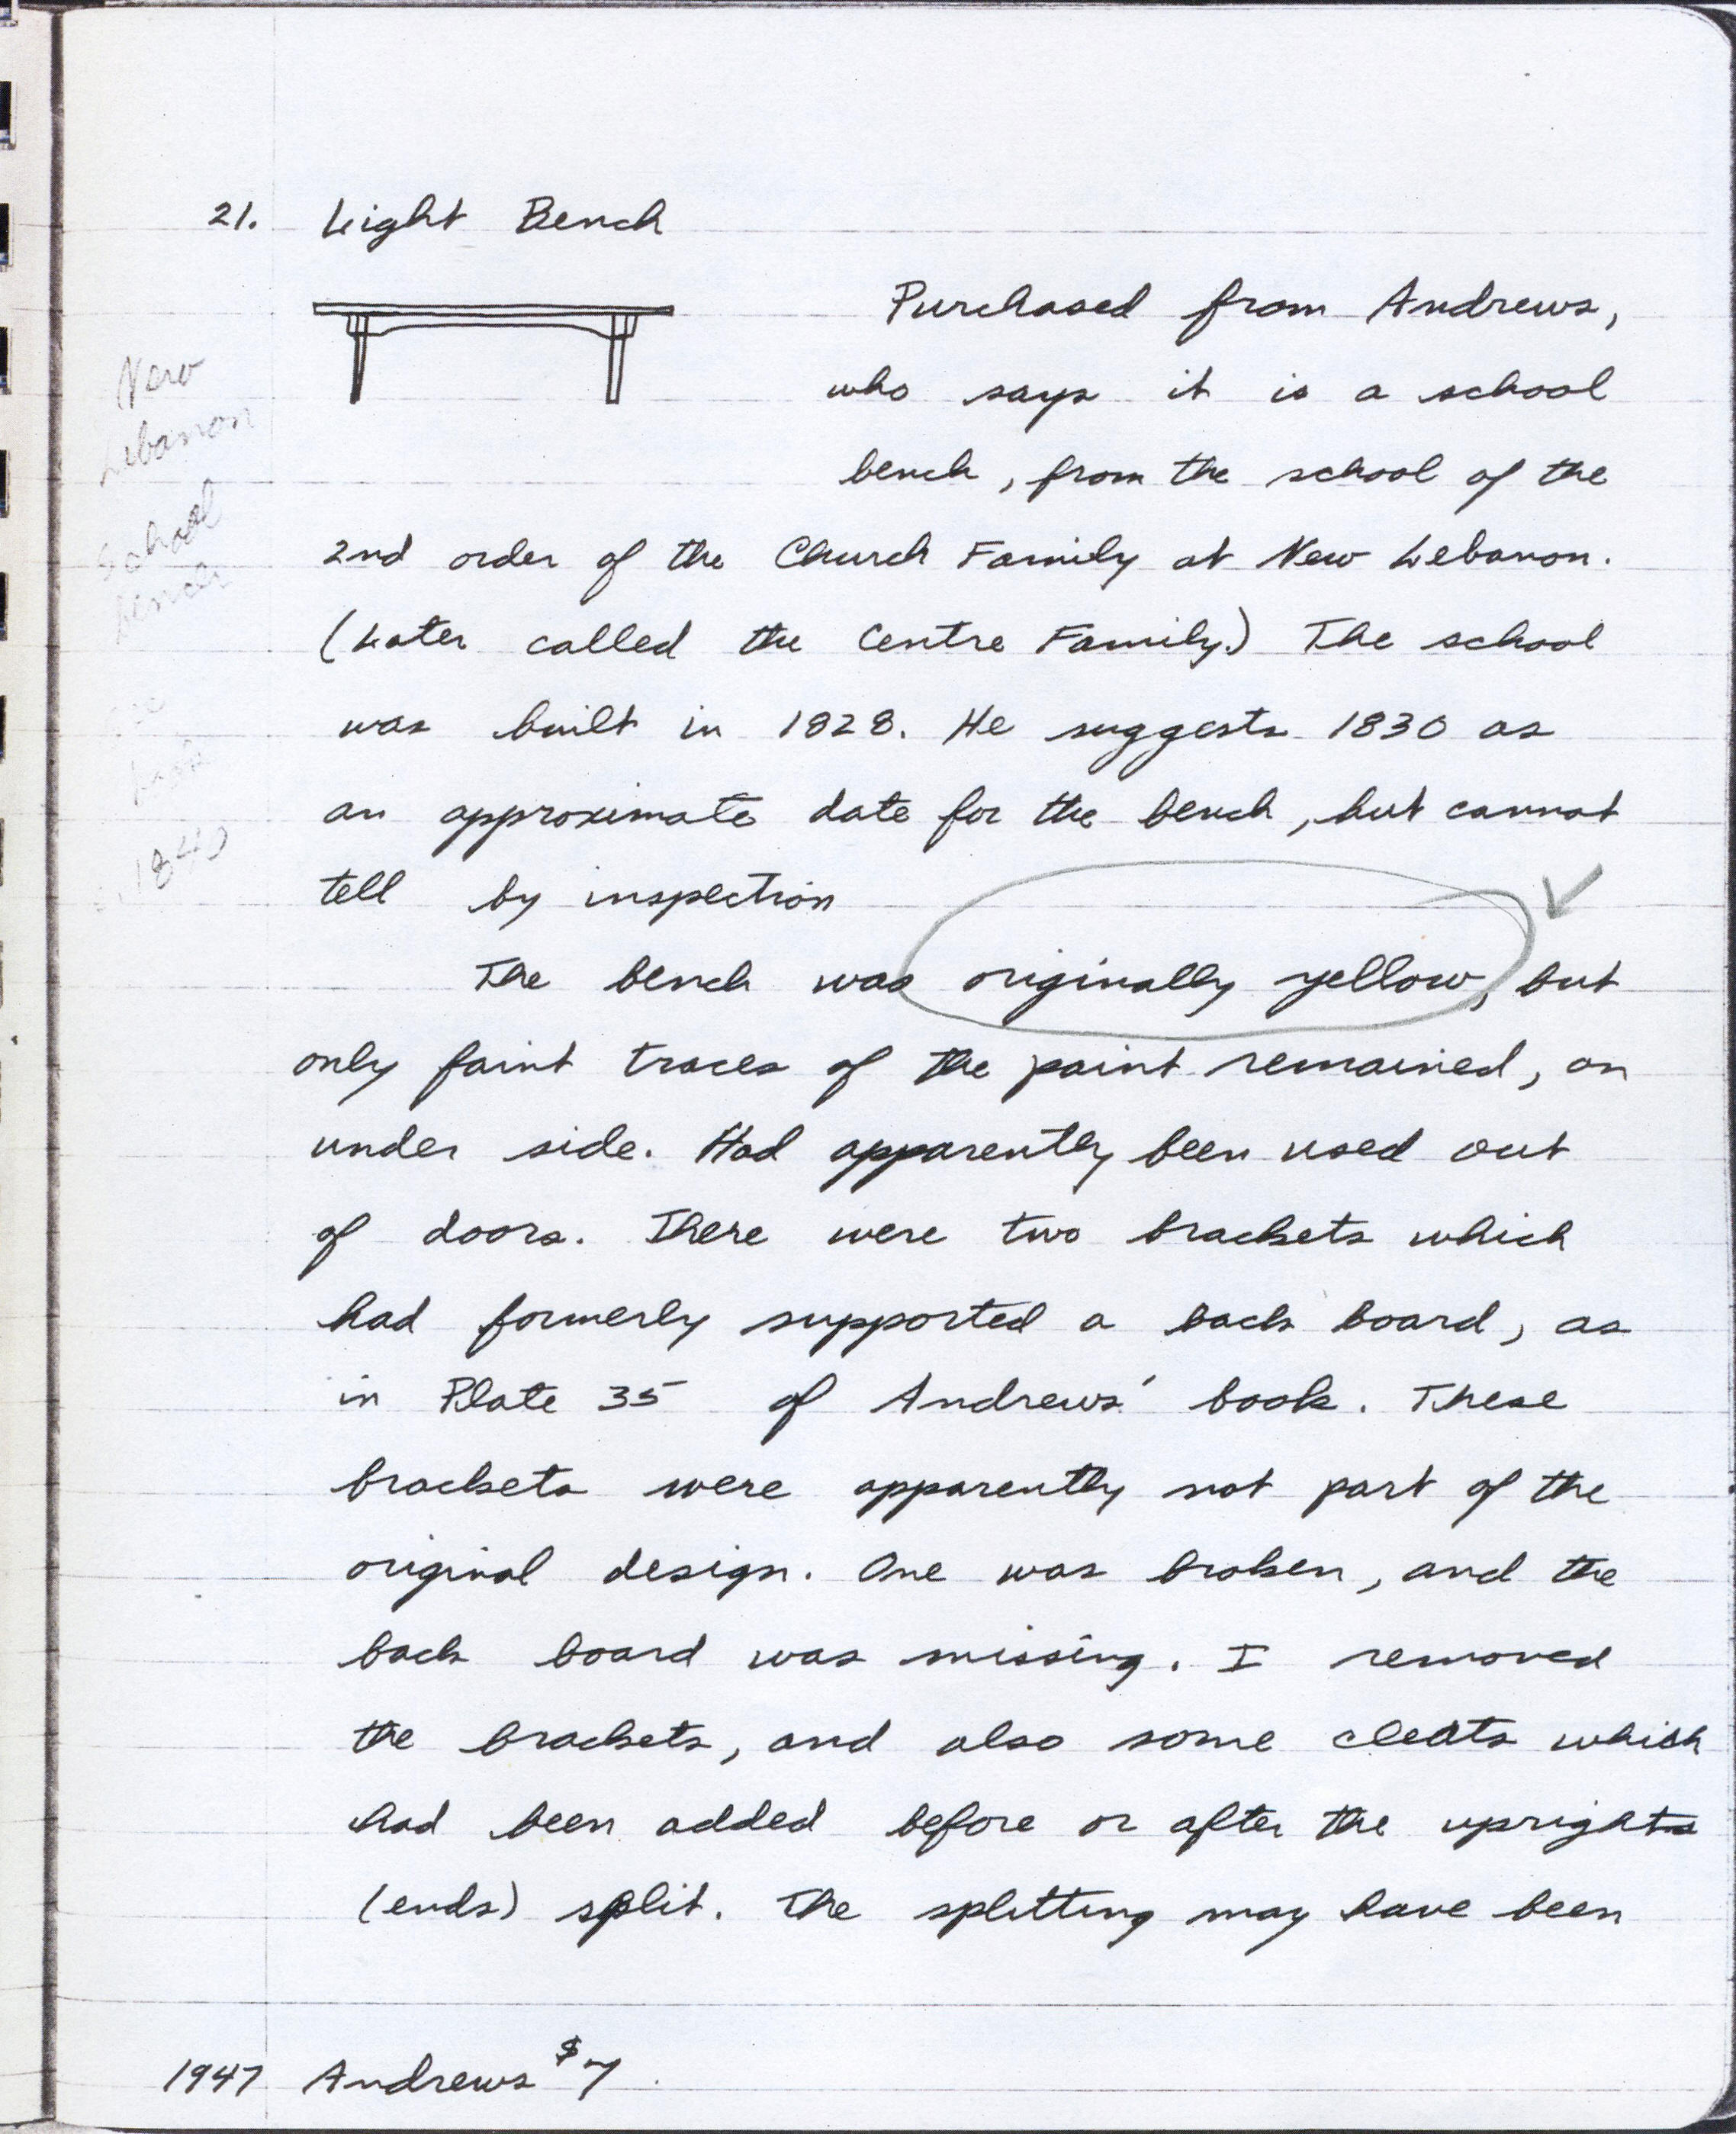 21. Light Bench
Purchased from Andrews,
who says it is a school
bench, from the school of the
2nd order of the Church Family at New Lebanon.
(Later called the Centre Family.) The school
was built in 1828. He suggests 1830 as
an approximate date for the bench, but cannot
tell by inspection
The bench was originally yellow, but
only faint traces of the paint remained, on
under side. Had apparently been used out
of doors. There were two brackets which
had formerly supported a back board, as
in Plate 35 of Andrews' book. These
brackets were apparently not part of the
original design. One was broken, and the
back board was missing. I removed
the brackets, and also some cleats which
had been added before or after the uprights
(ends) split. The splitting may have been
1947 Andrews $7
New
Lebanon
School
bench
1840